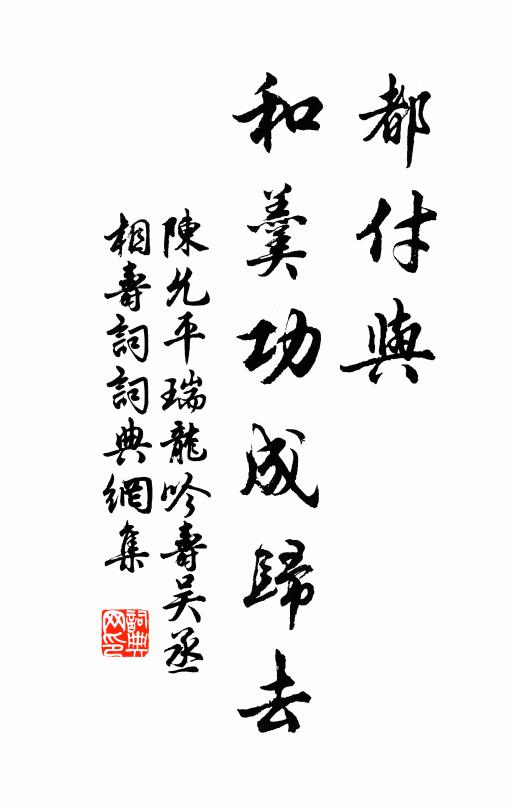 都付與
和羹功成歸去
陳允平瑞龍吟壽吳丞
相壽詞詞典網集
詞典網印